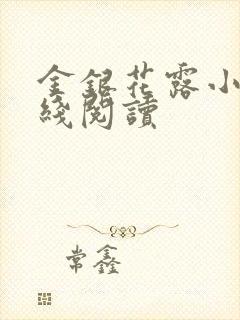 金銀花露小
綫閱讀
常鑫